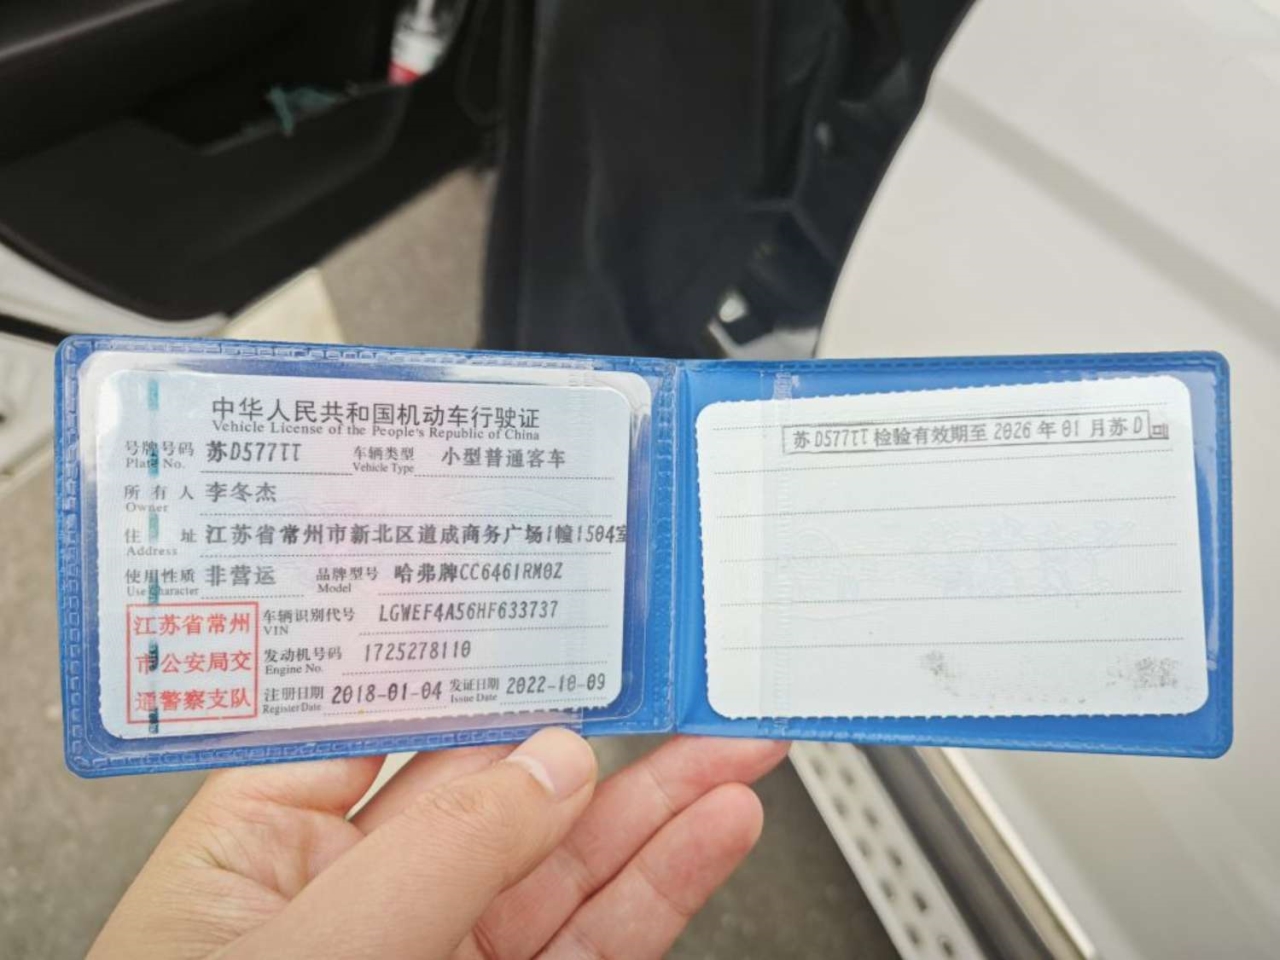 中华人民共和国机动车行驶证
Vehicle License of the People's Republic of China
号牌号码 苏D577TT 车辆类型 小型普通客车
Plate No. Vehicle Type
所有人 李冬杰
Owner
住址 江苏省常州市新北区道成商务广场1幢1504室
Address
使用性质 非营运 品牌型号 哈弗牌CC6461RM0Z
Use Character Model
江苏省常州
市公安局交
通警察支队
车辆识别代号 LGWEF4A56HF633737
VIN
发动机号码 1725278110
Engine No.
注册日期 2018-01-04 发证日期 2022-10-09
Register Date Issue Date
苏D577TT检验有效期至2026年01月苏D